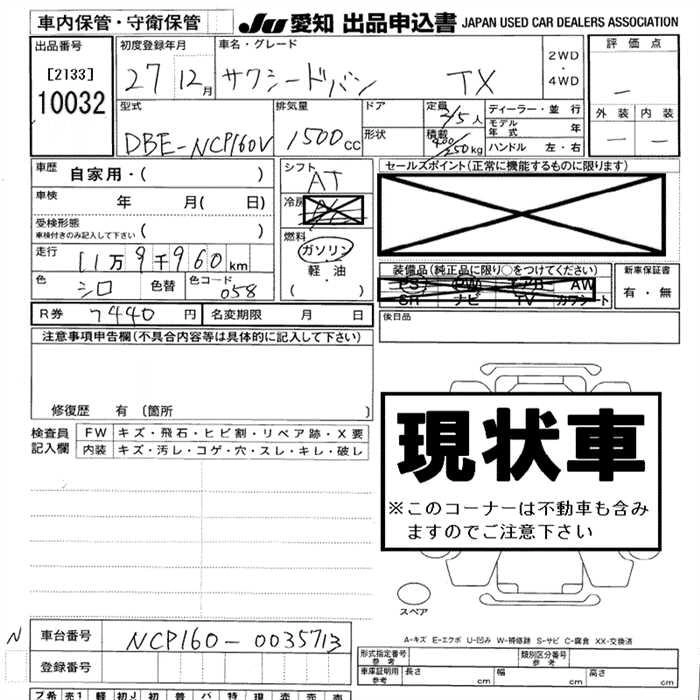 車内保管・守衛保管 JU 愛知 出品申込書 JAPAN USED CAR DEALERS ASSOCIATION
出品番号 初度登録年月 車名・グレード 2WD・4WD 評価点
[2133] 27 12月 サクシードバン TX －
10032 型式 排気量 ドア 定員 2/5人 ディーラー・並行 外装 内装
モデル年式 年
DBE-NCP160V 1500cc 形状 積載 400/250kg ハンドル 左・右 － －
車歴 自家用・( ) シフト AT セールスポイント(正常に機能するものに限ります)
車検 年 月( 日) 冷房
受検形態
車検付きのみ記入して下さい ( ) 燃料
走行 11万9千960km ガソリン・軽油
( ・ )
装備品(純正品に限り○をつけてください) 新車保証書
色 シロ 色替 色コード 058 PS PW エアB AW 有・無
SR ナビ TV カワシート
R券 7440円 名変期限 月 日 後日品
注意事項申告欄(不具合内容等は具体的に記入して下さい)
修復歴 有 〔箇所 〕
検査員記入欄 FW キズ・飛石・ヒビ割・リペア跡・X要
内装 キズ・汚レ・コゲ・穴・スレ・キレ・破レ
現状車
※このコーナーは不動車も含み
ますのでご注意下さい
スペア
N 車台番号 NCP160-0035713 A-キズ E-エクボ U-凹み W-補修跡 S-サビ C-腐食 XX-交換済
登録番号 形式指定番号 参考 類別区分番号 参考
車庫証明用 参考 長さ cm 幅 cm 高さ cm